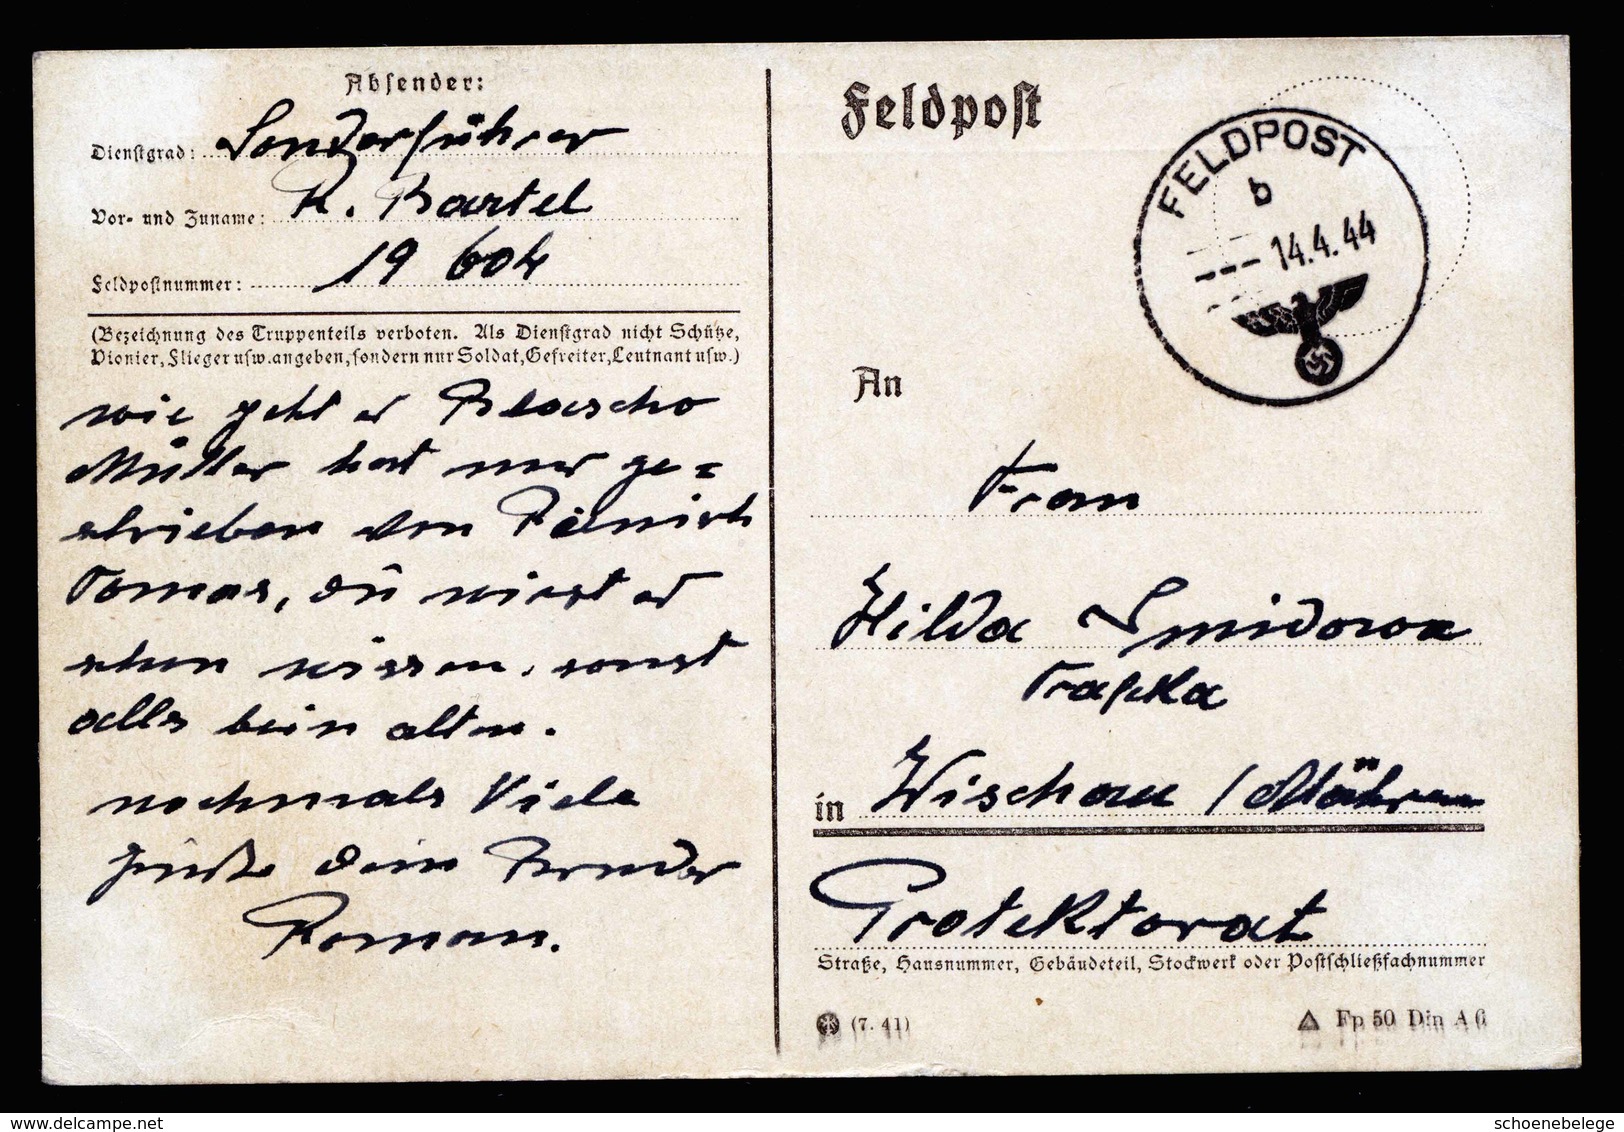 Absender:
Dienstgrad: Sonderführer
Vor- und Zuname: R. Bartel
Feldpostnummer: 19 604
(Bezeichnung des Truppenteils verboten. Als Dienstgrad nicht Schütze,
Pionier, Flieger usw. angeben, sondern nur Soldat, Gefreiter, Leutnant usw.)
wie geht er
Müller hat mir ge=
schrieben von
Tomas, du wirst er
schon wissen, sonst
alles beim alten.
nochmals Viele
Grüße dein Bruder
Roman.
Feldpost
FELDPOST
b
14.4.44
An
Frau
Hilda Smidowa
Trafika
in Wischau / Mähren
Protektorat
Straße, Hausnummer, Gebäudeteil, Stockwerk oder Postschließfachnummer
(7. 41)
Fp 50 Din A 6
www.delcampe.net
schoenebelege